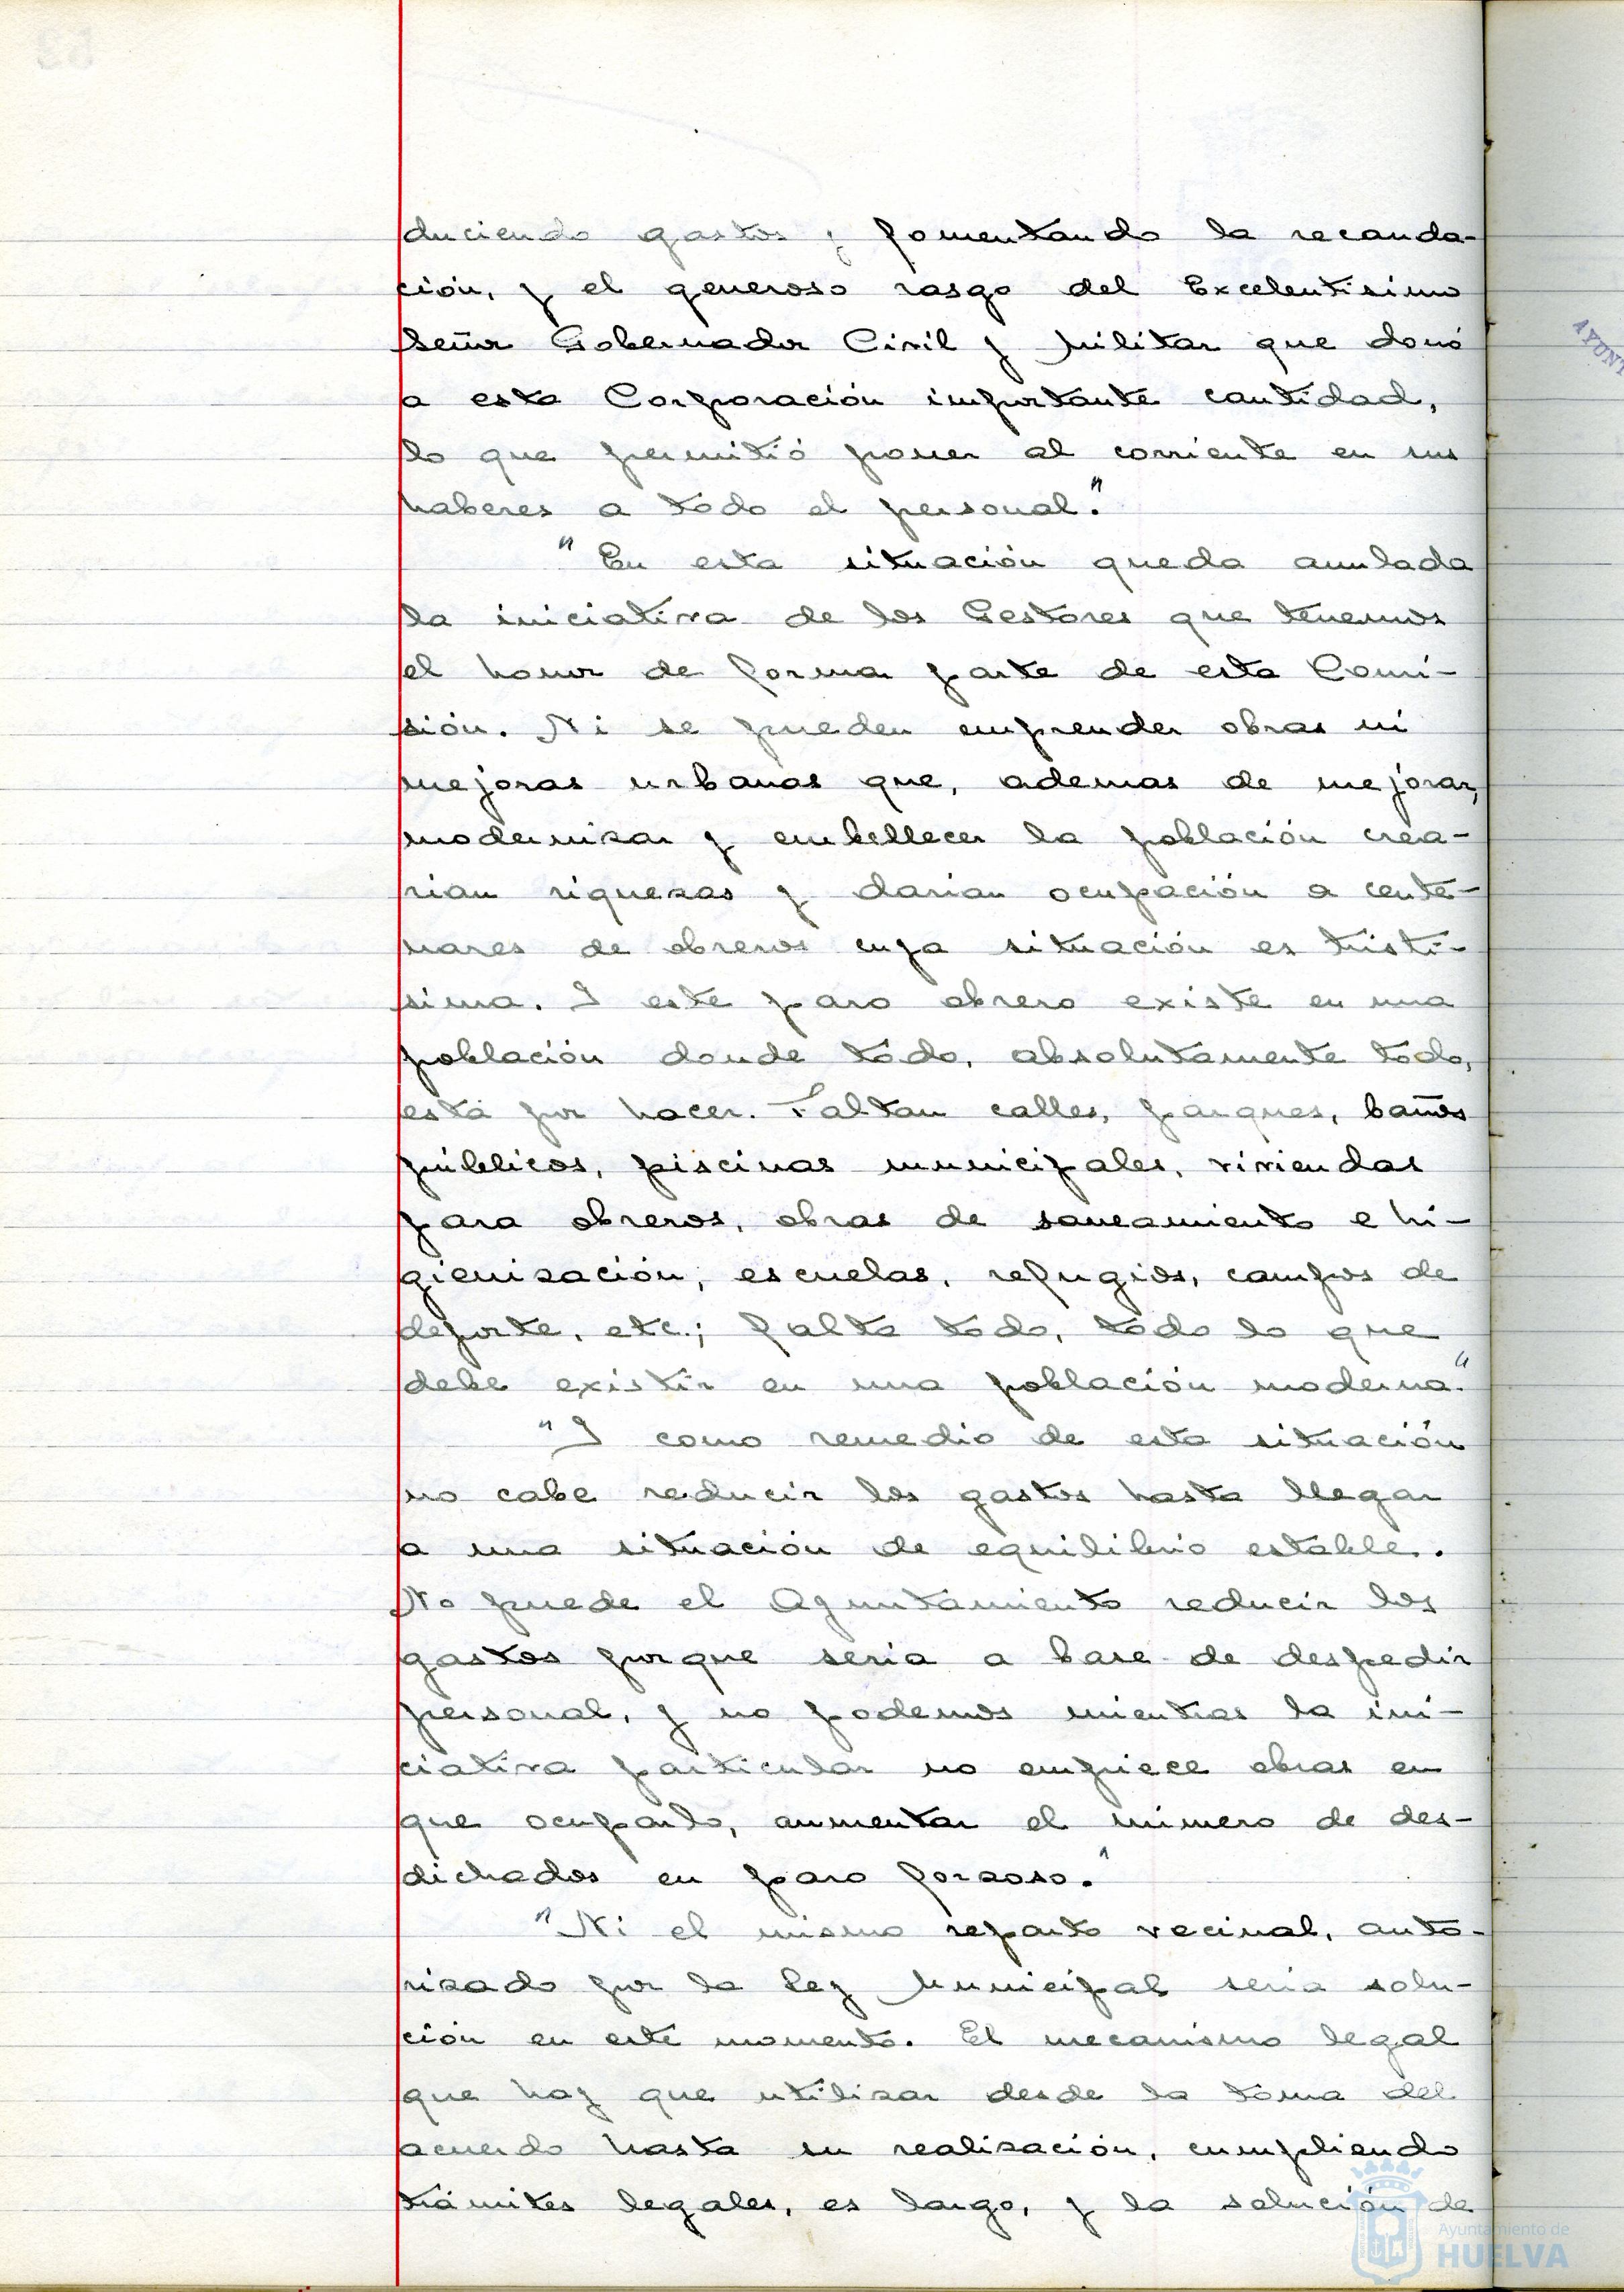 duciendo gastos y fomentando la recauda-
ción, y el generoso rasgo del Excelentisimo
Señor Gobernador Civil y Militar que donó
a esta Corporación importante cantidad,
lo que permitió poner al corriente en sus
haberes a todo el personal."
"En esta situación queda anulada
la iniciativa de los Gestores que tenemos
el honor de formar parte de esta Comi-
sión. Ni se pueden emprender obras ni
mejoras urbanas que, ademas de mejorar,
modernizar y embellecer la población crea-
rian riquezas y darian ocupación a cente-
nares de obreros cuya situación es tristi-
sima. Y este paro obrero existe en una
población donde todo, absolutamente todo,
está por hacer. Faltan calles, parques, baños
públicos, piscinas municipales, viviendas
para obreros, obras de saneamiento e hi-
gienización, escuelas, refugios, campos de
deporte, etc.; falta todo, todo lo que
debe existir en una población moderna."
"Y como remedio de esta situación
no cabe reducir los gastos hasta llegar
a una situación de equilibrio estable.
No puede el Ayuntamiento reducir los
gastos porque seria a base de despedir
personal, y no podemos mientras la ini-
ciativa particular no empiece obras en
que ocuparlo, aumentar el número de des-
dichados en paro forzoso."
"Ni el mismo reparto vecinal, auto-
rizado por la Ley Municipal seria solu-
ción en este momento. El mecanismo legal
que hay que utilizar desde la toma del
acuerdo hasta su realización, cumpliendo
trámites legales, es largo, y la solución de
AYUNT
Ayuntamiento de
HUELVA